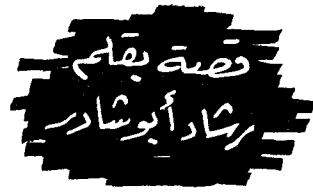 قصة بقلم
رشاد أبو شادر